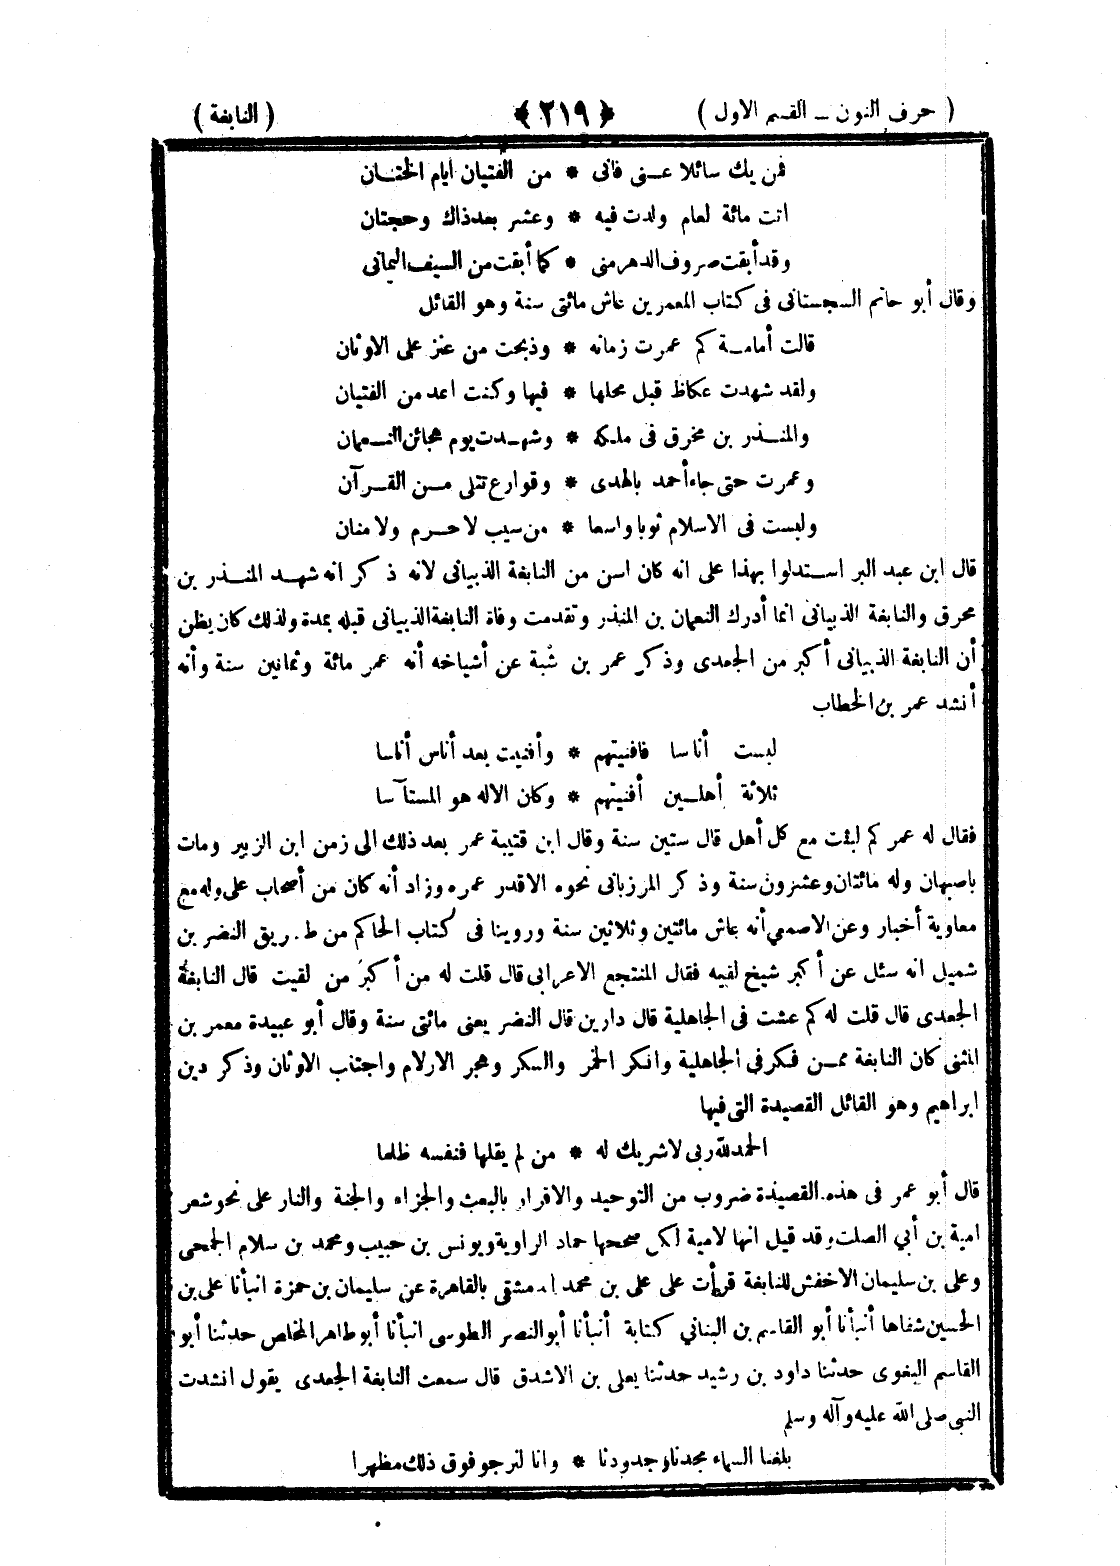 ( حرف النون ــ القسم الاول ) ﴿ ٢١٩ ﴾ ( النابغة )
فمن يك سائلا عنى فانى * من الفتيان ايام الختان
اتت مائة لعام ولدت فيه * وعشر بعد ذاك وحجتان
وقد أبقت صروف الدهر منى * كما أبقت من السيف اليمانى
وقال أبو حاتم السجستانى فى كتاب المعمرين عاش مائتى سنة وهو القائل
قالت أمامة كم عمرت زمانه * وذبحت من عنز على الاوثان
ولقد شهدت عكاظ قبل محلها * فيها وكنت اعد من الفتيان
والمنذر بن محرق فى ملكه * وشهدت يوم هجائن النعمان
وعمرت حتى جاء أحمد بالهدى * وقوارع تتلى من القرآن
ولبست فى الاسلام ثوبا واسعا * من سيب لا حرم ولا منان
قال ابن عبد البر استدلوا بهذا على انه كان اسن من النابغة الذبيانى لانه ذكر انه شهد المنذر بن
محرق والنابغة الذبيانى انما أدرك النعمان بن المنذر وتقدمت وفاة النابغة الذبيانى قبله بمدة ولذلك كان يظن
أن النابغة الذبيانى أكبر من الجعدى وذكر عمر بن شبة عن أشياخه أنه عمر مائة وثمانين سنة وأنه
أنشد عمر بن الخطاب
لبست أناسا فافنيتهم * وأفنيت بعد أناس أناسا
ثلاثة أهلين أفنيتهم * وكان الاله هو المستآسا
فقال له عمر كم لبثت مع كل أهل قال ستين سنة وقال ابن قتيبة عمر بعد ذلك الى زمن ابن الزبير ومات
باصبهان وله مائتان وعشرون سنة وذكر المرزبانى نحوه الا قدر عمره وزاد أنه كان من أصحاب على وله مع
معاوية أخبار وعن الاصمعي أنه عاش مائتين وثلاثين سنة وروينا فى كتاب الحاكم من طريق النضر بن
شميل انه سئل عن أكبر شيخ لقيه فقال المنتجع الاعرابى قال قلت له من أكبر من لقيت قال النابغة
الجعدى قال قلت له كم عشت فى الجاهلية قال دارين قال النضر يعنى مائتى سنة وقال أبو عبيدة معمر بن
المثنى كان النابغة ممن فكر فى الجاهلية وانكر الخمر والسكر وهجر الازلام واجتنب الاوثان وذكر دين
ابراهيم وهو القائل القصيدة التى فيها
الحمد لله ربى لا شريك له * من لم يقلها فنفسه ظلما
قال أبو عمر فى هذه القصيدة ضروب من التوحيد والاقرار بالبعث والجزاء والجنة والنار على نحو شعر
امية بن أبي الصلت وقد قيل انها لامية لكن صححها حماد الراوية ويونس بن حبيب ومحمد بن سلام الجمحى
وعلى بن سليمان الاخفش للنابغة قرأت على على بن محمد الدمشقى بالقاهرة عن سليمان بن حمزة انبأنا على بن
الحسين شفاها أنبأنا أبو القاسم بن البناني كتابة أنبأنا أبو النصر الطوسى انبأنا أبو طاهر المخلص حدثنا أبو
القاسم البغوى حدثنا داود بن رشيد حدثنا يعلى بن الاشدق قال سمعت النابغة الجعدى يقول انشدت
النبى صلى الله عليه وآله وسلم
بلغنا السماء مجدنا وجدودنا * وانا لنرجو فوق ذلك مظهرا